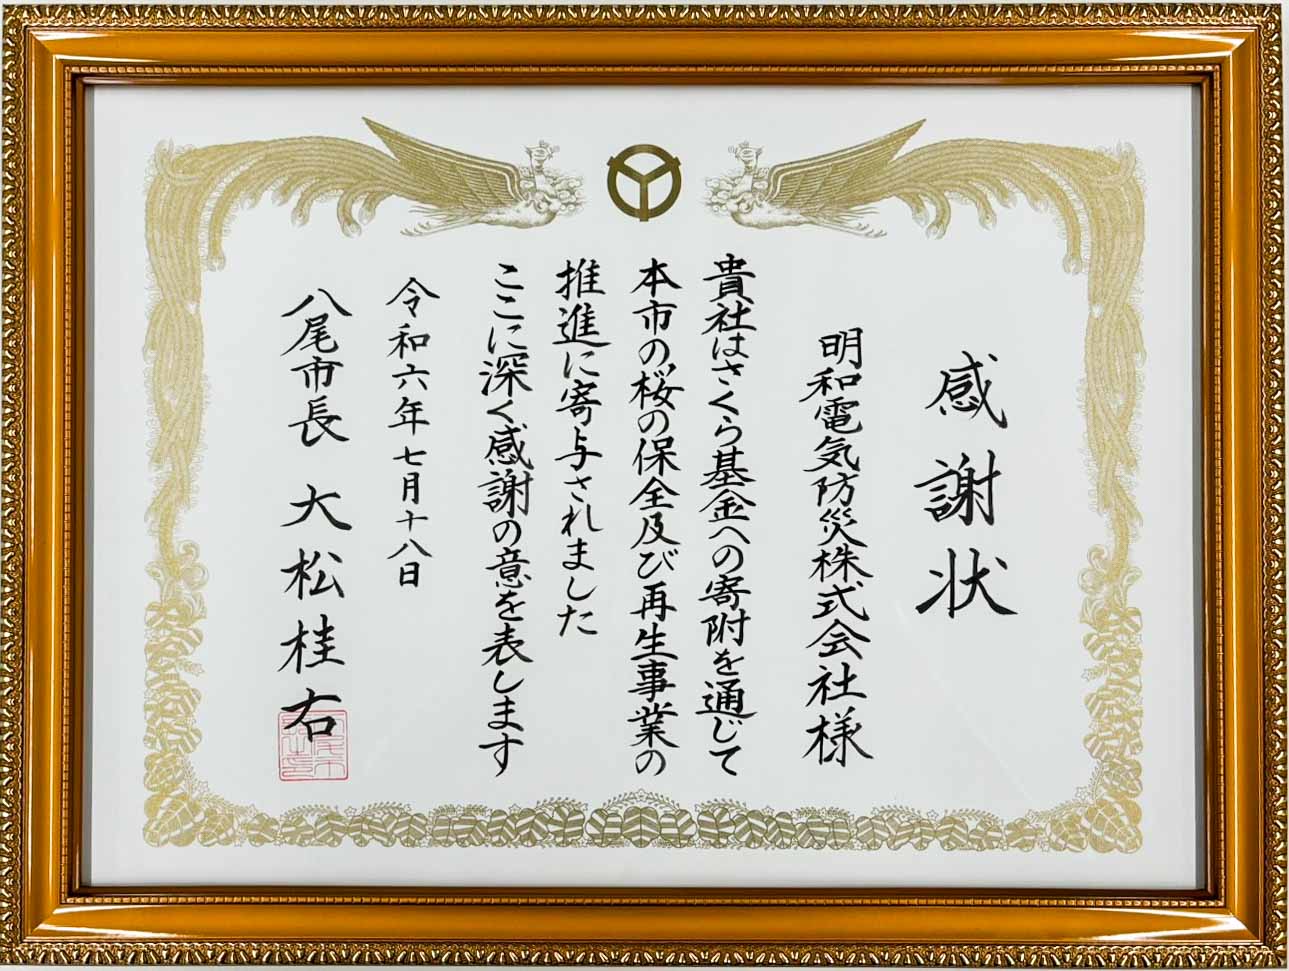 感謝状
明和電気防災株式会社様
貴社はさくら基金への寄附を通じて
本市の桜の保全及び再生事業の
推進に寄与されました
ここに深く感謝の意を表します
令和六年七月十八日
八尾市長 大松桂右